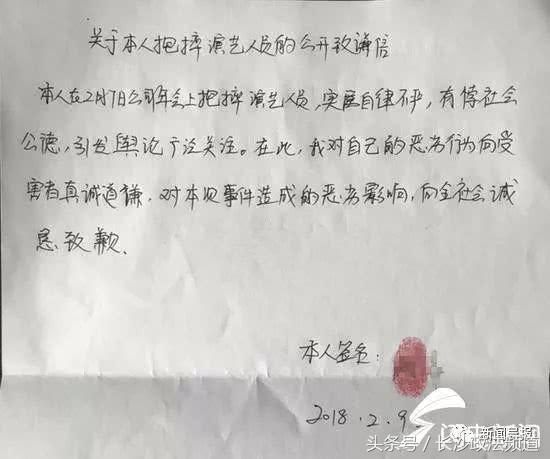 关于本人抱摔演艺人员的公开致谦信
本人在2月7日公司年会上抱摔演艺人员,实属自律不严,有悖社会
公德,引发舆论广泛关注。在此,我对自己的恶劣行为向受
害者真诚道谦,对本次事件造成的恶劣影响,向全社会诚
恳致歉。
本人签名:
2018.2.9
新闻晨报
头条号/长沙政法频道